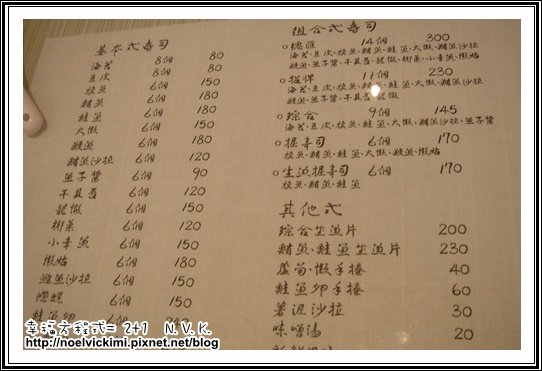 基本式壽司
海苔 8個 80
豆皮 8個 80
旗魚 6個 150
鮪魚 6個 180
鮭魚 6個 180
大蝦 6個 150
鰻魚 6個 180
鮪魚沙拉 6個 120
魚子醬 6個 90
干貝唇 6個 120
龍蝦 6個 150
櫛瓜 6個 120
小卷 6個 150
蝦蛄 6個 150
鮭魚沙拉 6個 150
螺 6個 150
鮭魚卵 6個 240
組合式壽司
○總匯 14個 300
海苔、豆皮、旗魚、鮪魚、鮭魚、大蝦、鮪魚沙拉
鰻魚、魚子醬、干貝唇、龍蝦
11個 230
海苔、豆皮、旗魚、鮪魚、鮭魚、大蝦、鮪魚沙拉
鰻魚、魚子醬、干貝唇、龍蝦
○綜合 9個 145
海苔、豆皮、旗魚、鮭魚、大蝦、鮪魚沙拉、魚子醬
○握壽司 6個 170
旗魚、鮪魚、鮭魚、大蝦、鰻魚、蝦蛄
○生魚握壽司 6個 170
旗魚、鮪魚、鮭魚
其他式
綜合生魚片 200
鮪魚、鮭魚生魚片 230
蘆筍、蝦手捲 40
鮭魚卵手捲 60
薯泥沙拉 30
味噌湯 20
幸福方程式= 2+1 N.V.K.
http://noelvickimi.pixnet.net/blog